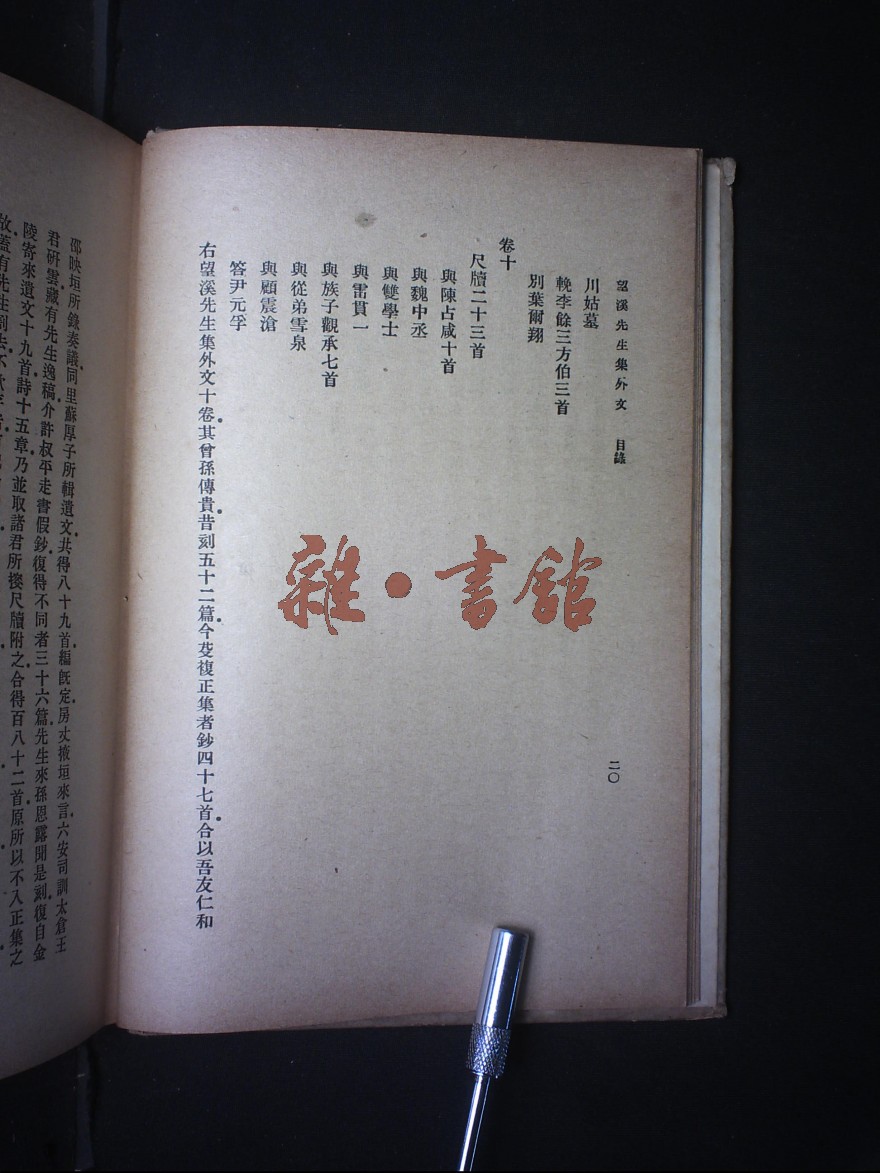 望溪先生集外文 目錄
二〇
川姑墓
輓李餘三方伯三首
別葉爾翔
卷十
尺牘二十三首
與陳占咸十首
與魏中丞
與雙學士
與雷貫一
與族子觀承七首
與從弟雪泉
與顧震滄
答尹元孚
右望溪先生集外文十卷其曾孫傳貴昔刻五十二篇今芟複正集者鈔四十七首合以吾友仁和
邵映垣所錄奏議同里蘇厚子所輯遺文共得八十九首編旣定房丈掖垣來言六安司訓太倉王
君研雲藏有先生逸稿介許叔平走書假鈔復得不同者三十六篇先生來孫恩露聞是刻復自金
陵寄來遺文十九首詩十五章乃並取諸君所摉尺牘附之合得百八十二首原所以不入正集之
故蓋有先生
雜·書館